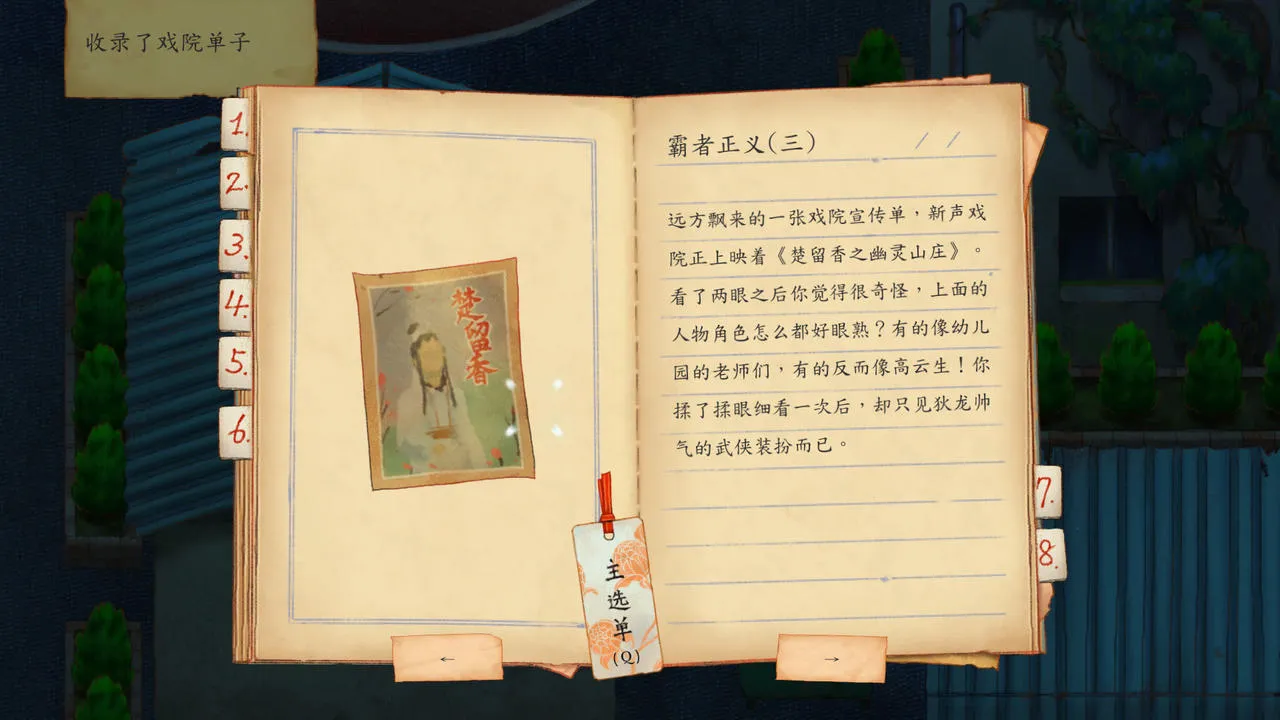 收录了戏院单子
1.
2.
3.
4.
5.
6.
楚留香
霸者正义(三)
远方飘来的一张戏院宣传单，新声戏
院正上映着《楚留香之幽灵山庄》。
看了两眼之后你觉得很奇怪，上面的
人物角色怎么都好眼熟？有的像幼儿
园的老师们，有的反而像高云生！你
揉了揉眼细看一次后，却只见狄龙帅
气的武侠装扮而已。
7.
8.
主选单
(Q)
←
→